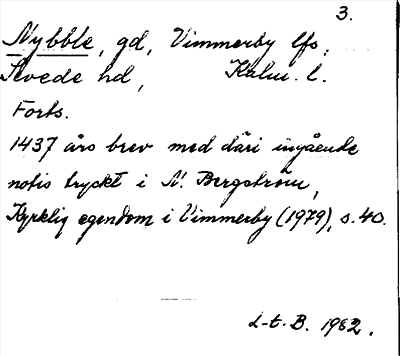 3.
Nybble, gd, Vimmerby lfs,
Sevede hd, Kalm. l.
Forts.
1437 års brev med däri ingående
notis tryckt i N. Bergström,
Kyrklig egendom i Vimmerby (1979), s. 40.
L-t. B. 1982.